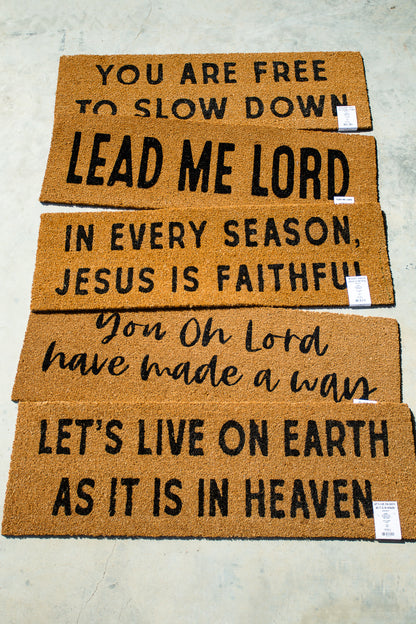 YOU ARE FREE
TO SLOW DOWN
LEAD ME LORD
IN EVERY SEASON,
JESUS IS FAITHFUL
You Oh Lord
have made a way
LET'S LIVE ON EARTH
AS IT IS IN HEAVEN